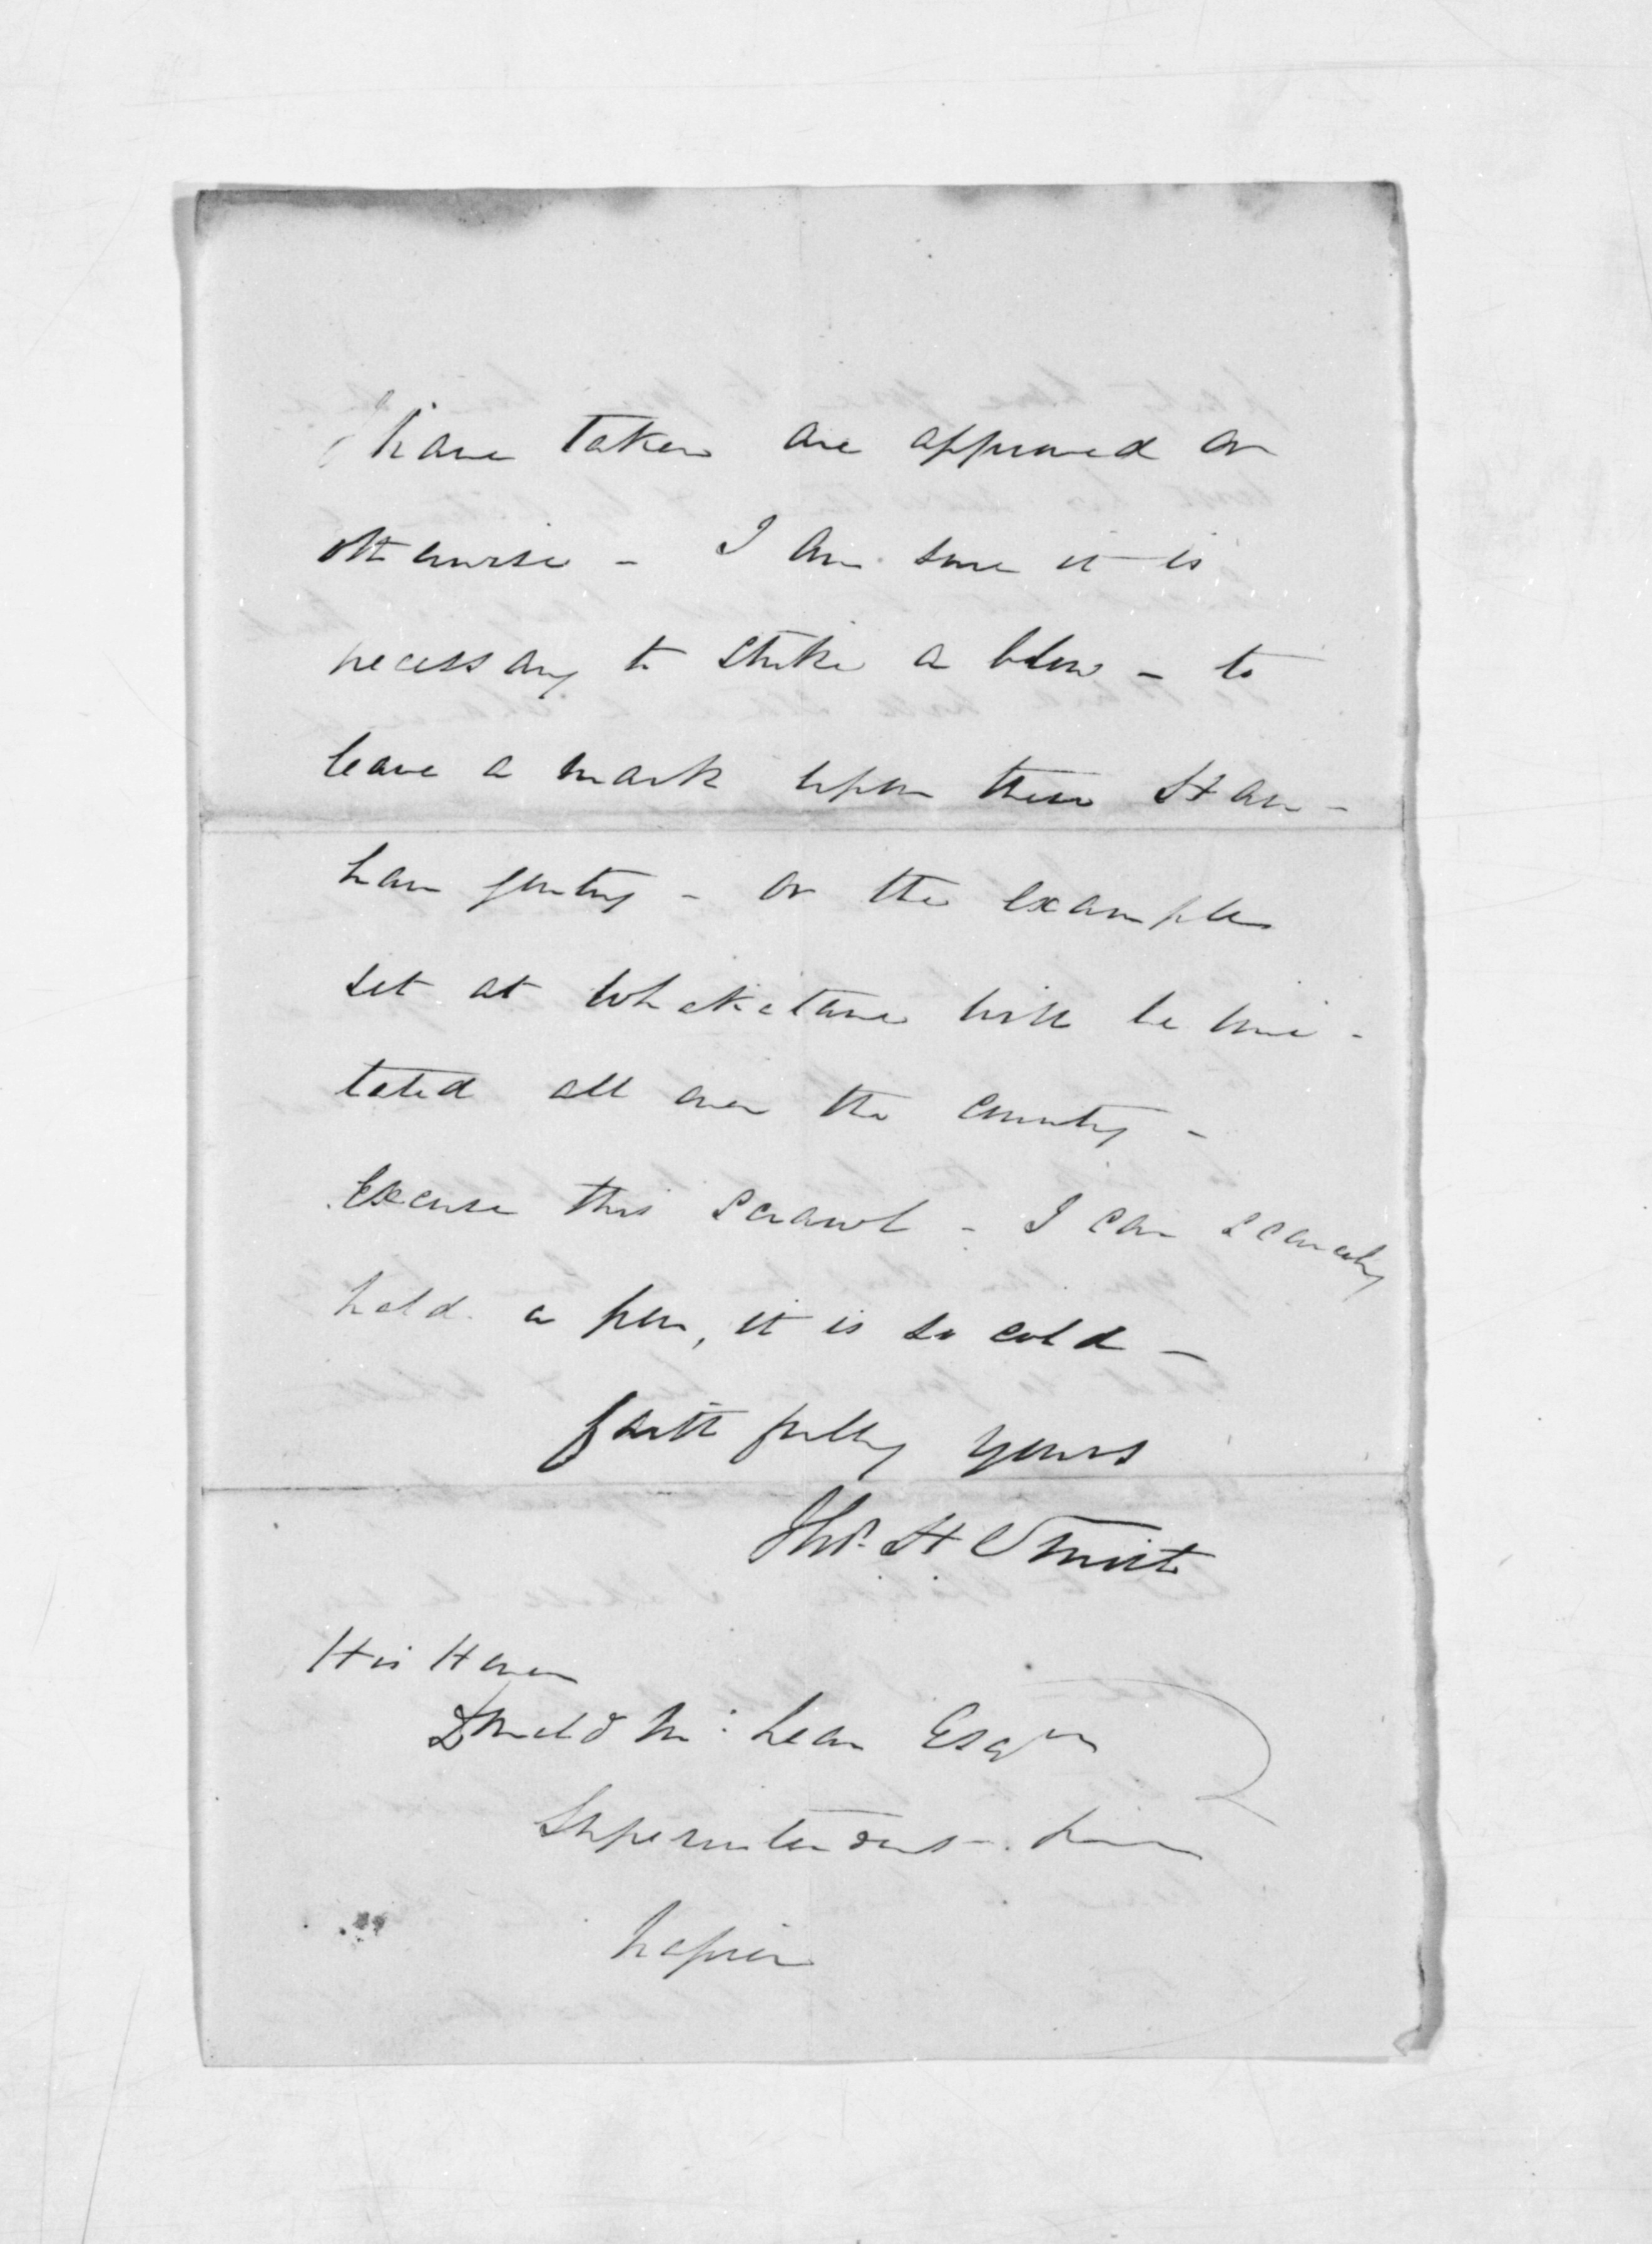 I have taken are approved or
otherwise - I am sure it is
necessary to strike a blow - to
leave a mark upon these Hau-
hau gentry - or the example
set at Whakatane will be imi-
tated all over the country -
Excuse this scrawl - I can scarcely
hold a pen, it is so cold -
faithfully yours
Thos. H Smith
His Honor
Donald McLean Esqre
Superintendent
Napier